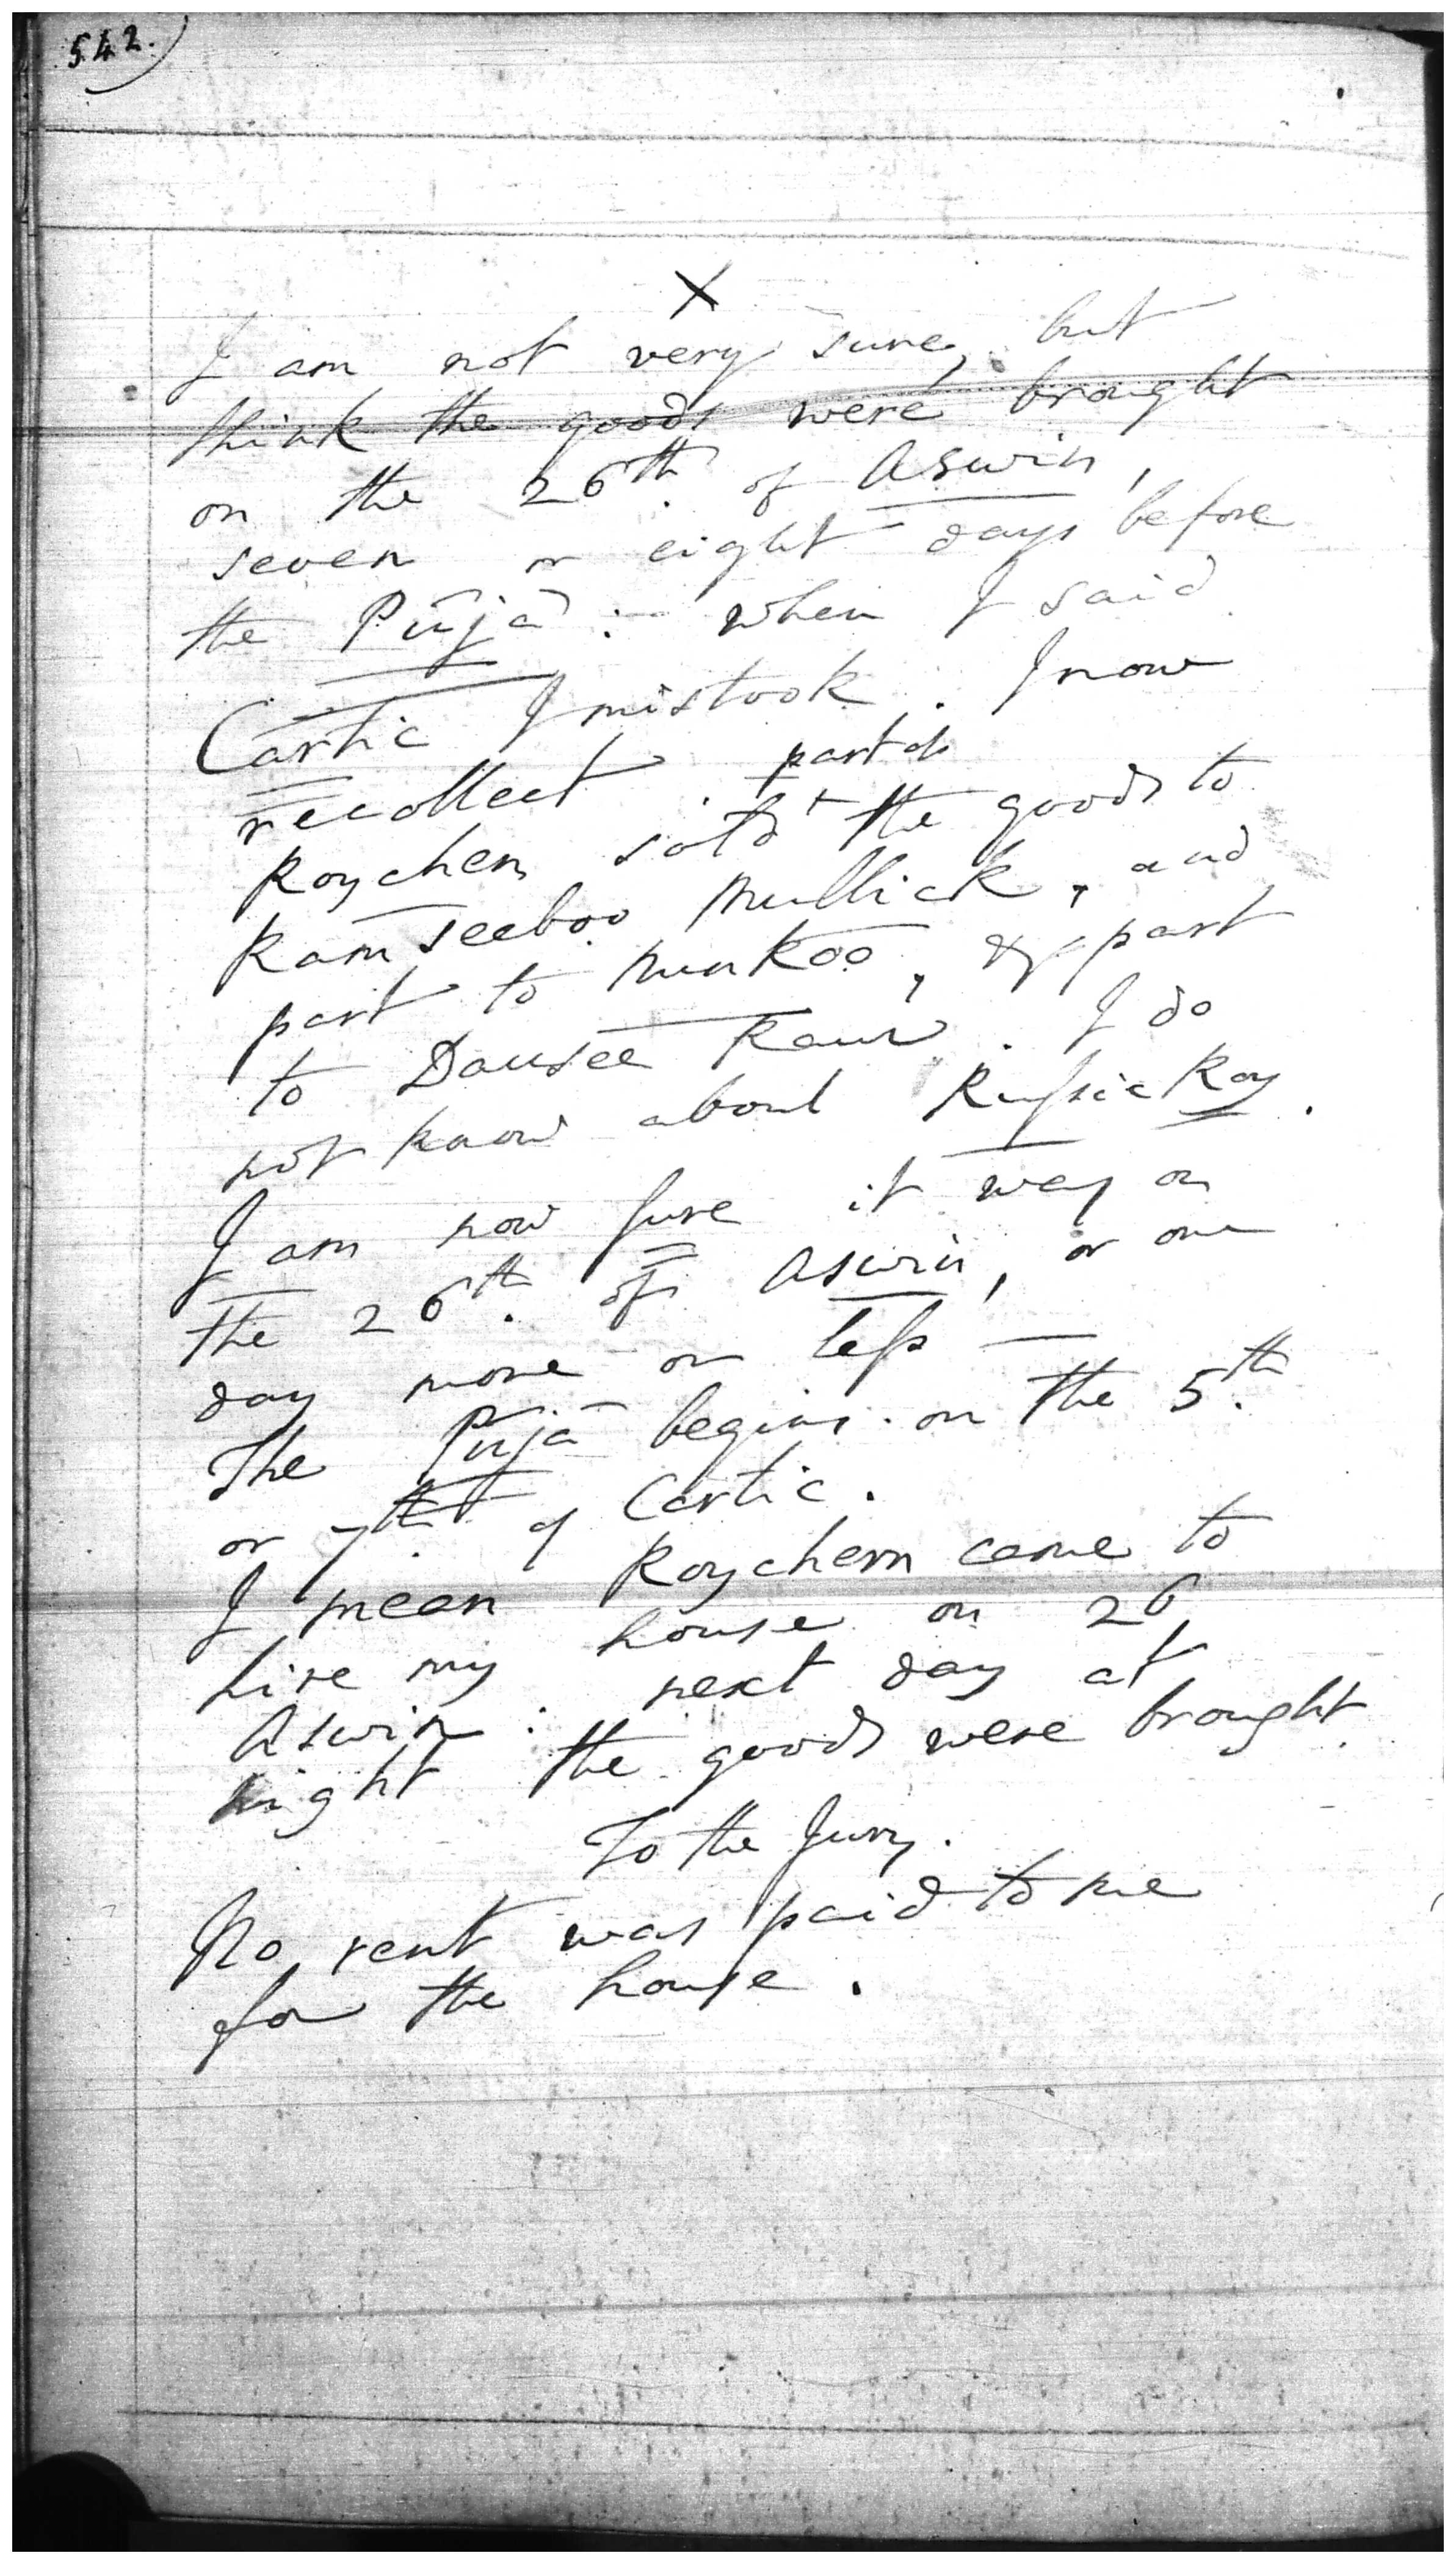 542.)
X
I am not very sure, but
think the goods were brought
on the 26th. of Aswin,
seven or eight days before
the Pūjā :- when I said
Cartic I mistook. I now
recollect part of
Roychen sold the goods to
Ram Seeboo Mullick, and
part to Munkoo, & part
to Dausee Raur. I do
not know about Ruſsic Roy.
I am now ſure it was on
the 26th. of Aswin, or one
day more or leſs —
The Pūjā begins on the 5th.
or 7th. of Cartic.
I mean Roychern came to
hire my house on 26
Aswin : next day at
night the goods were brought.
To the Jury.
No rent was paid to me
for the houſe.